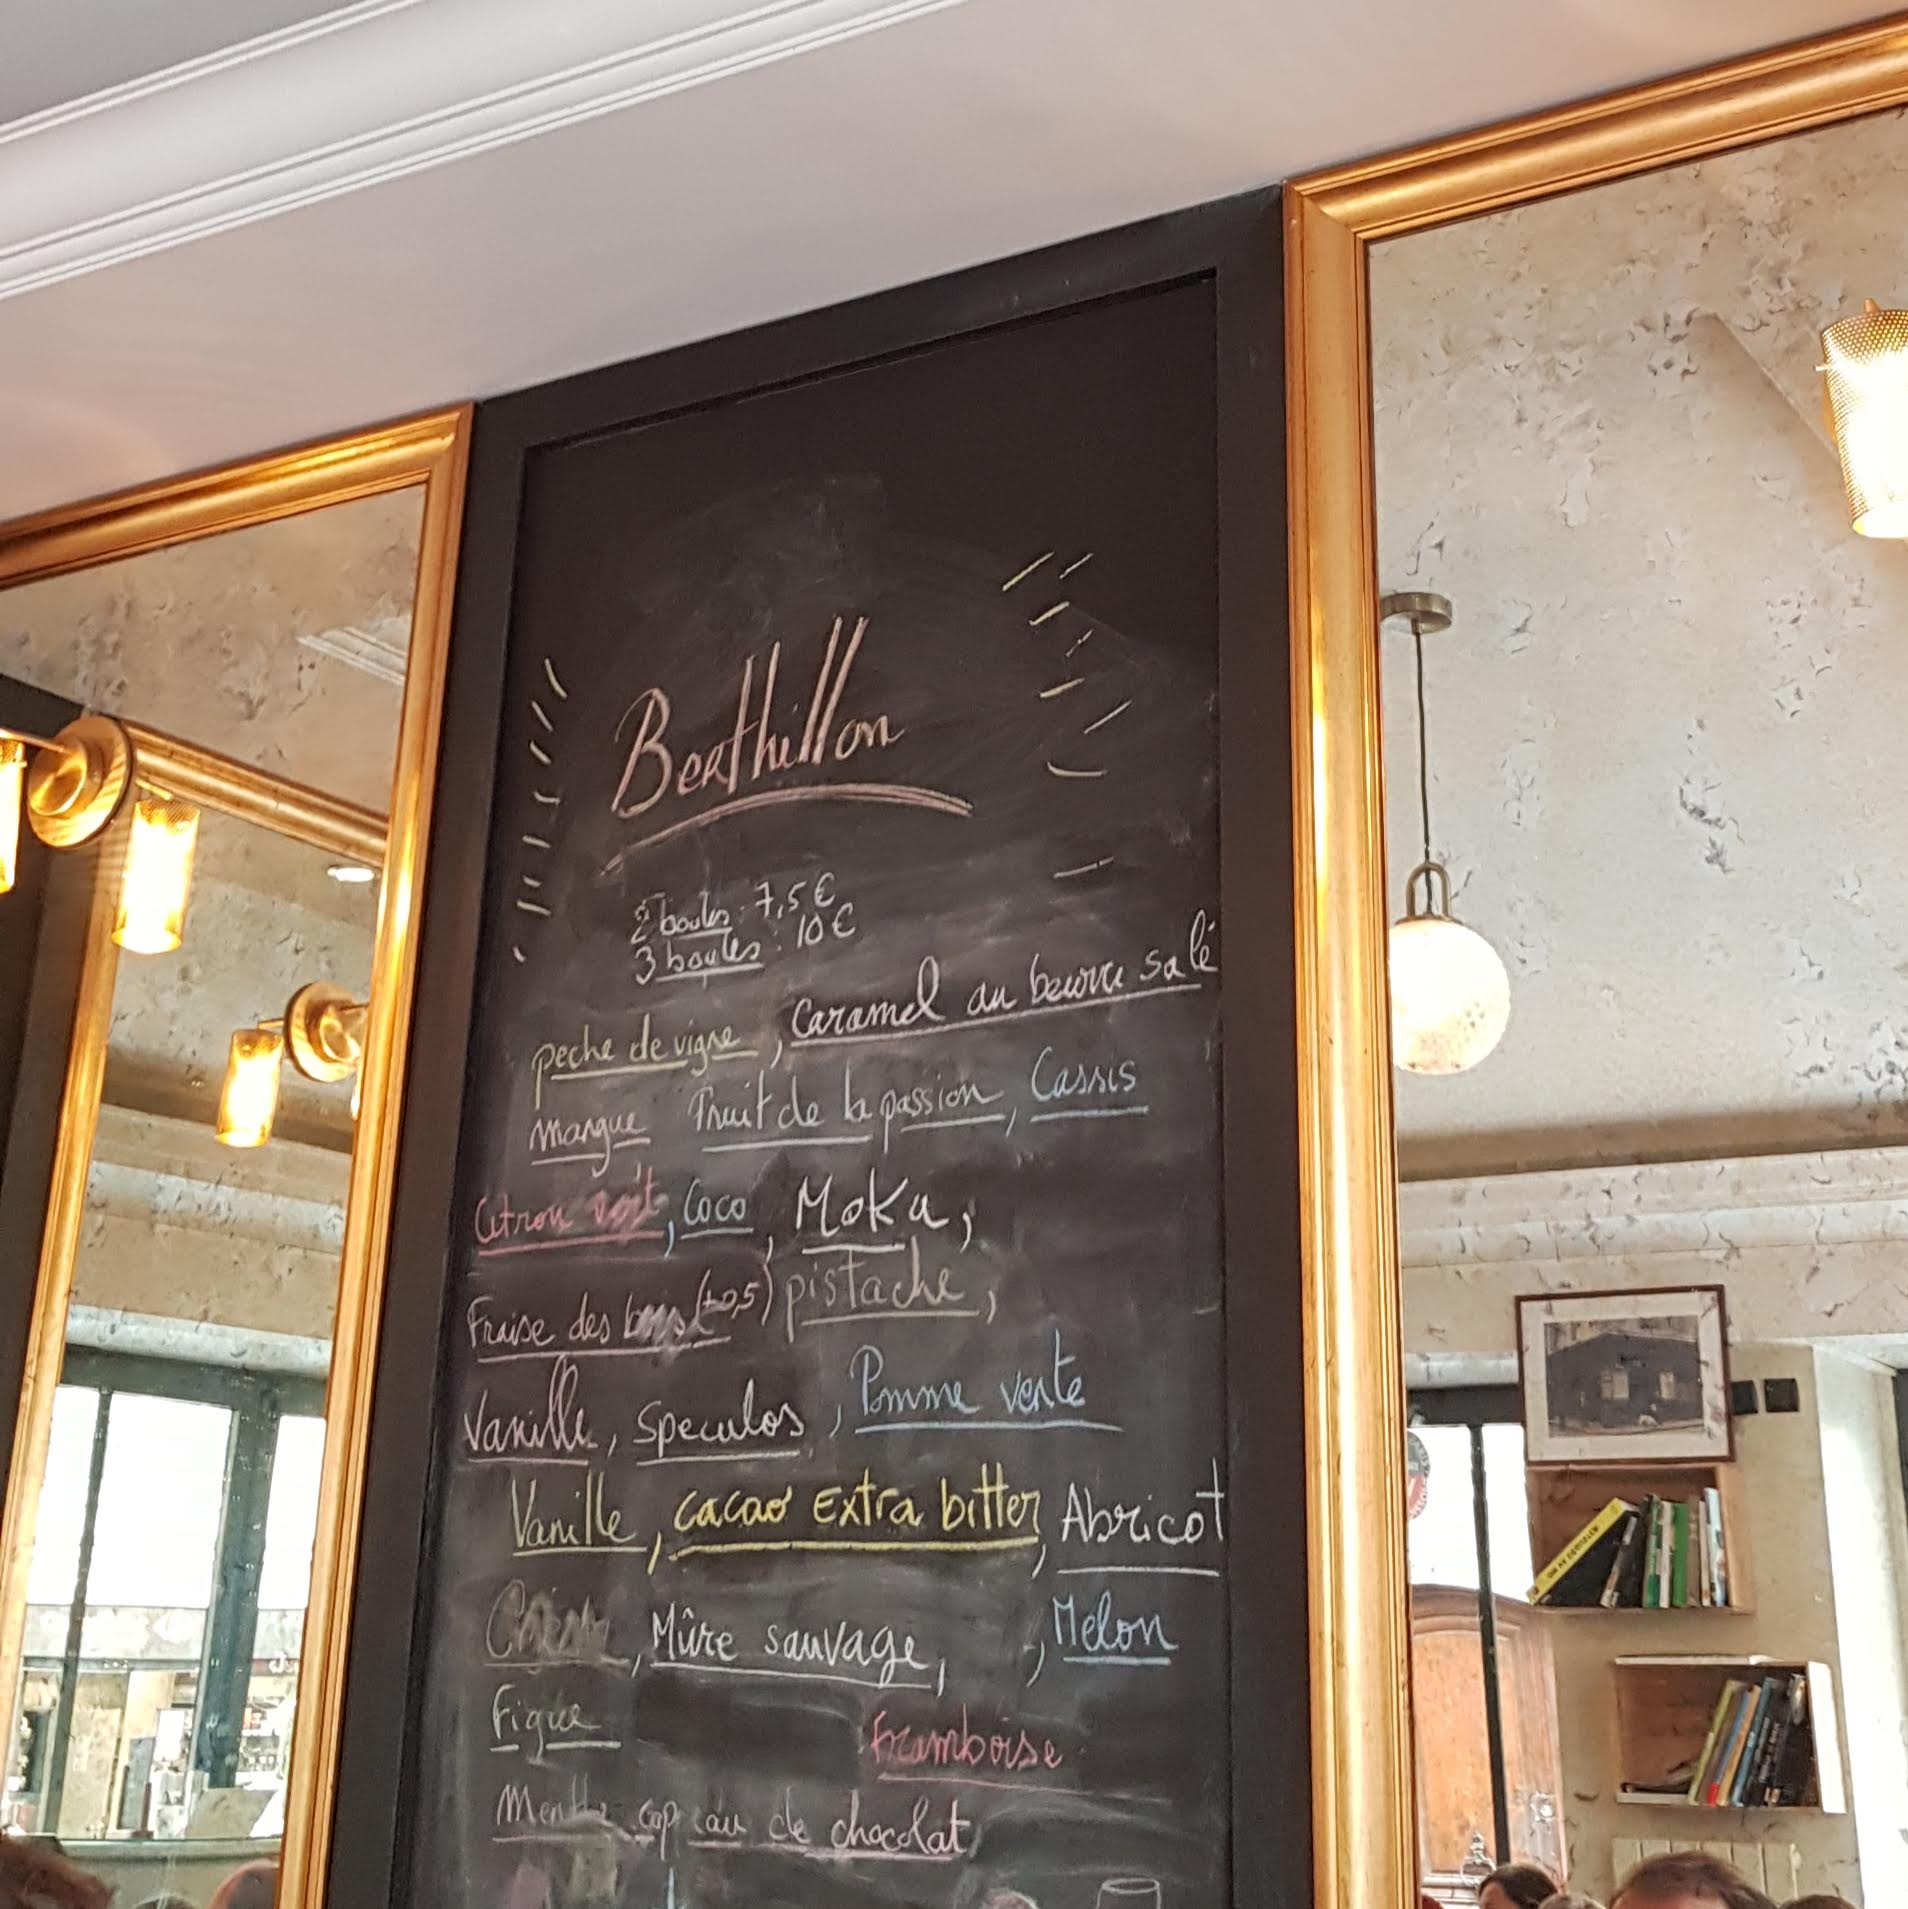 Berthillon
2 boules : 7,5€
3 boules : 10€
peche de vigne, Caramel au beurre salé
mangue Fruit de la passion, Cassis
Citron vert, Coco, Moka,
Fraise des bois (+0,5) pistache,
Vanille, Speculos, Pomme verte
Vanille, cacao Extra bitter, Abricot
, Mûre sauvage, , Melon
Figue Framboise
Menthe cop eau de chocolat